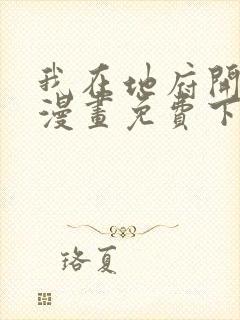 我在地府開
漫畫免費下
珞夏